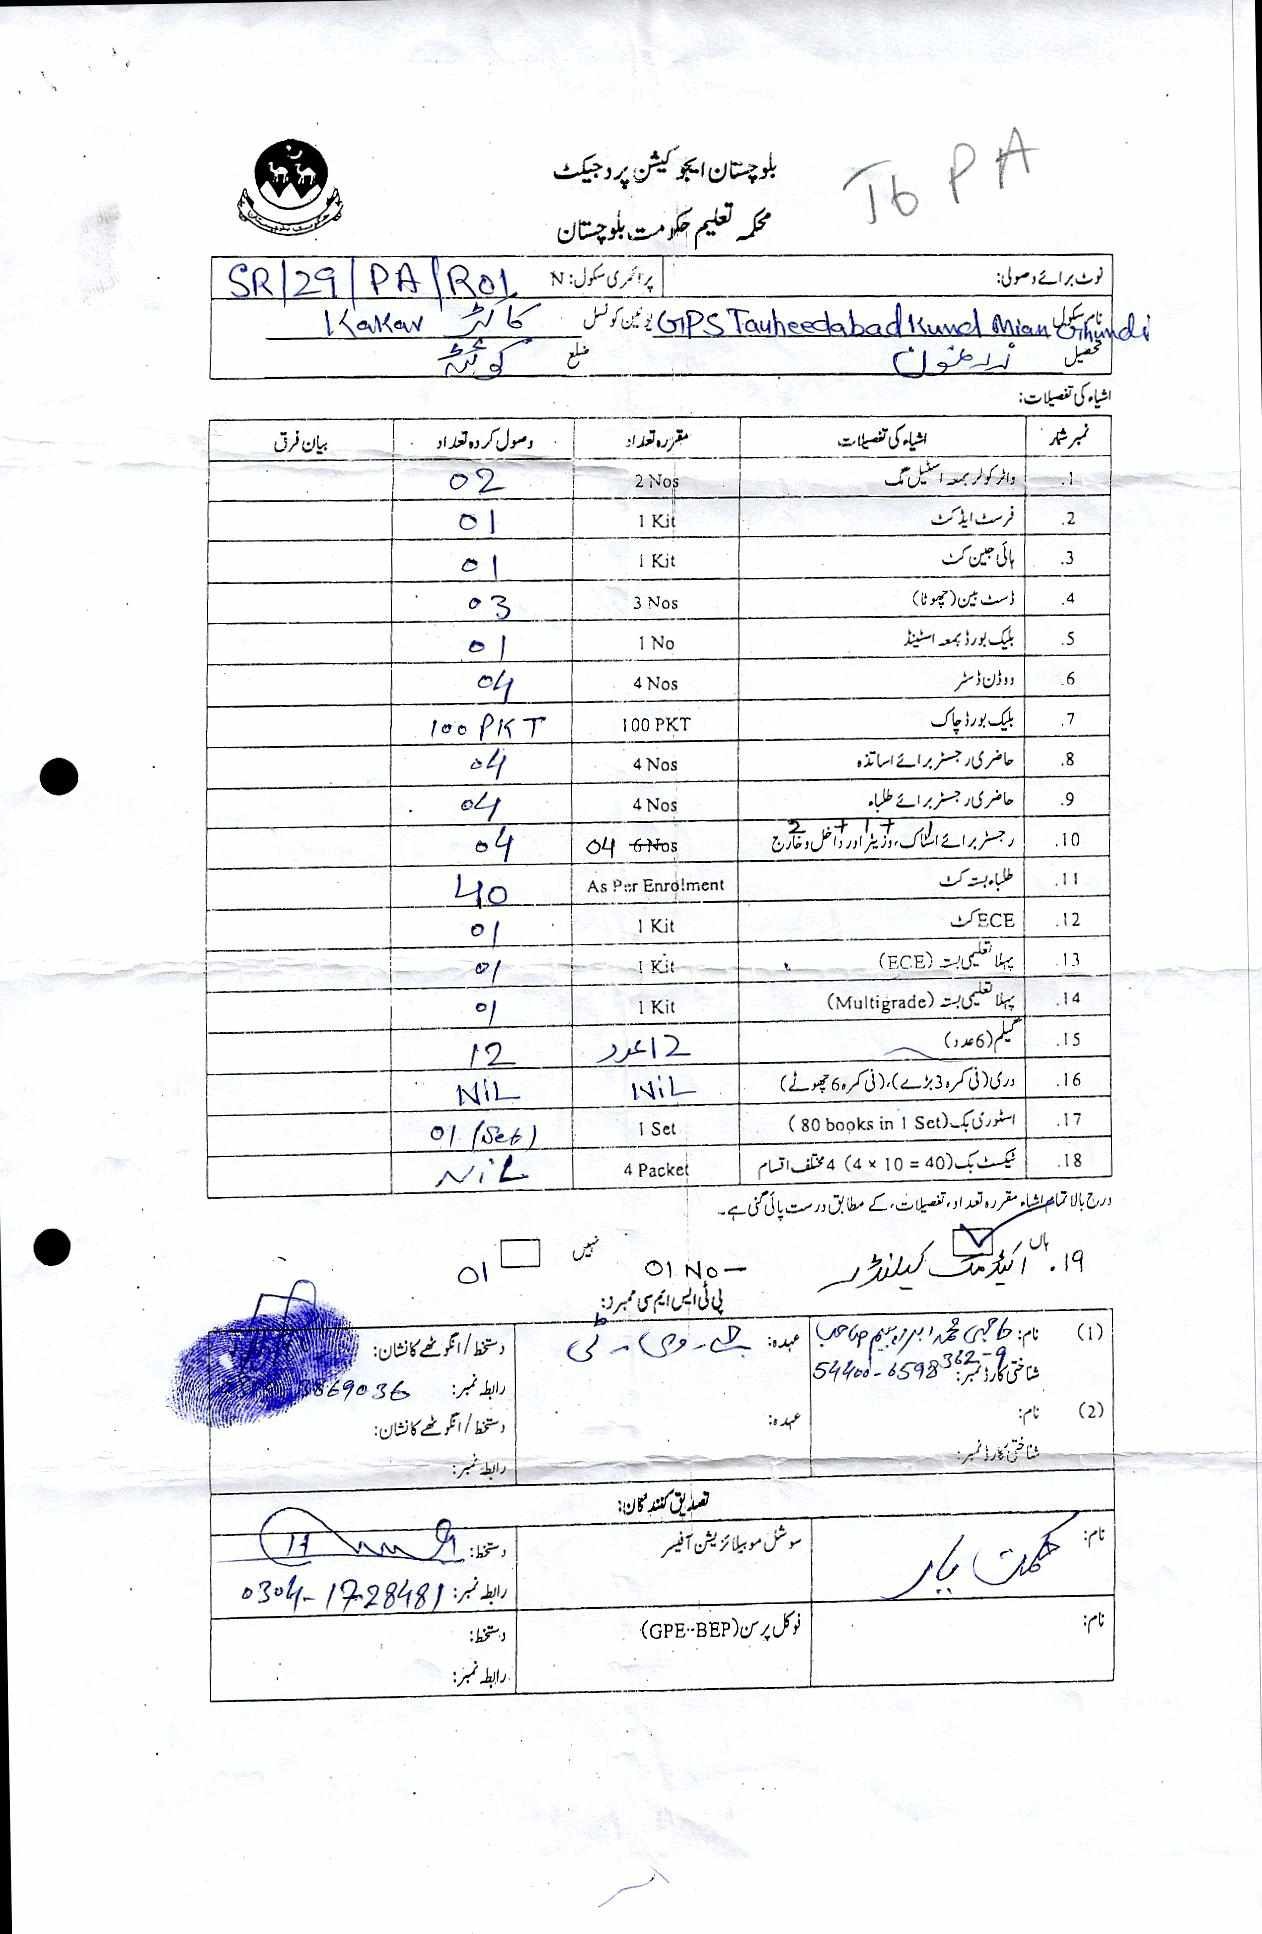 بلوچستان ایجوکیشن پروجیکٹ
To PA
محکمہ تعلیم حکومت بلوچستان
نوٹ برائے وصولی: پرائمری سکول: N SR/29/PA/R01
نام سکول GPS Tauheedabad Kund Mian Ghundi یونین کونسل کاکڑ Kakar
تحصیل زرغون ضلع کوئٹہ
اشیاء کی تفصیلات:
نمبر شمار اشیاء کی تفصیلات مقررہ تعداد وصول کردہ تعداد بیان فرق
1. واٹر کولر بمعہ اسٹیل مگ 2 Nos 02
2. فرسٹ ایڈ کٹ 1 Kit 01
3. ہائی جین کٹ 1 Kit 01
4. ڈسٹ بین (چھوٹا) 3 Nos 03
5. بلیک بورڈ بمعہ اسٹینڈ 1 No 01
6. ووڈن ڈسٹر 4 Nos 04
7. بلیک بورڈ چاک 100 PKT 100 PKT
8. حاضری رجسٹر برائے اساتذہ 4 Nos 04
9. حاضری رجسٹر برائے طلباء 4 Nos 04
1 + 1 + 2
10. رجسٹر برائے اسٹاک، وزیٹر اور داخل و خارج 6 Nos 04 04
11. طلباء بستہ کٹ As Per Enrolment 40
12. ECE کٹ 1 Kit 01
13. پہلا تعلیمی بستہ (ECE) 1 Kit 01
14. پہلا تعلیمی بستہ (Multigrade) 1 Kit 01
15. گیلم (6 عدد) 12 عدد 12
16. دری (فی کمرہ 3 بڑے)، (فی کمرہ 6 چھوٹے) NiL NiL
17. اسٹوری بک (80 books in 1 Set) 1 Set 01 (Set)
18. ٹیکسٹ بک (4 × 10 = 40) 4 مختلف اقسام 4 Packet NiL
درج بالا تمام اشیاء مقررہ تعداد، تفصیلات، کے مطابق درست پائی گئی ہے۔
ہاں نہیں
19. اکیڈمک کیلنڈر 01 No - 01
پی ٹی ایس ایم سی ممبرز:
(1) نام: حاجی محمد ابراہیم صاحب عہدہ: جے۔وی۔ٹی دستخط/انگوٹھے کا نشان:
شناختی کارڈ نمبر: 54400-6598362-9 رابطہ نمبر: 3869036
(2) نام: عہدہ: دستخط/انگوٹھے کا نشان:
شناختی کارڈ نمبر: رابطہ نمبر:
تصدیق کنندگان:
نام: حکمت یار سوشل موبیلائزیشن آفیسر دستخط:
رابطہ نمبر: 0304-1728481
نام: فوکل پرسن (GPE-BEP) دستخط:
رابطہ نمبر: